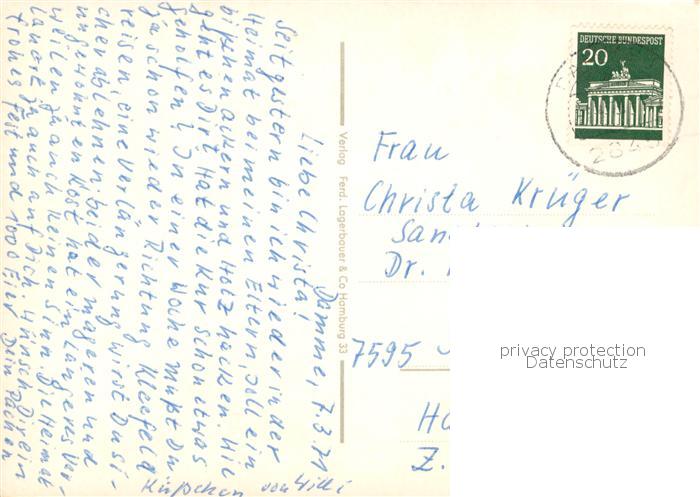 Damme, 7.3.71
Liebe Christa!
Seit gestern bin ich wieder in der
Heimat bei meinen Eltern, soll ein
bißchen ackern und Holz hacken. Wie
geht es Dir? Hat die Kur schon etwas
geholfen? In einer Woche mußt Du
ja schon wieder Richtung Kleefeld
reisen, eine Verlängerung wirst Du si-
cher ablehnen, bei der mageren und
ungewohnten Kost hat ein längeres Ver-
weilen ja auch keinen Sinn. Die Heimat
lauert ja auch auf Dich. Wünsch Dir ein
frohes Fest und 1000 Eier Dein
Küßchen von Willi
Verlag Ferd. Lagerbauer & Co Hamburg 33
DEUTSCHE BUNDESPOST
20
284
Frau
Christa Krüger
San
Dr.
7595
Ha
Z.
privacy protection
Datenschutz